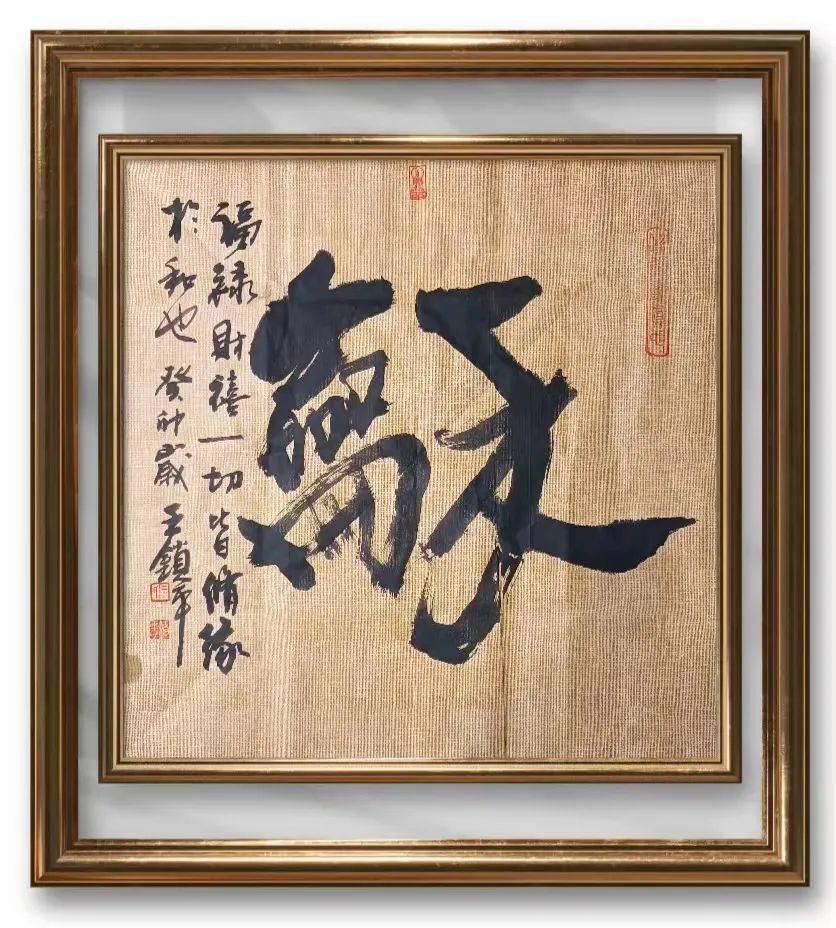 龢
福祿財禧一切皆脩缘
於和也 癸卯歲 王鎮平